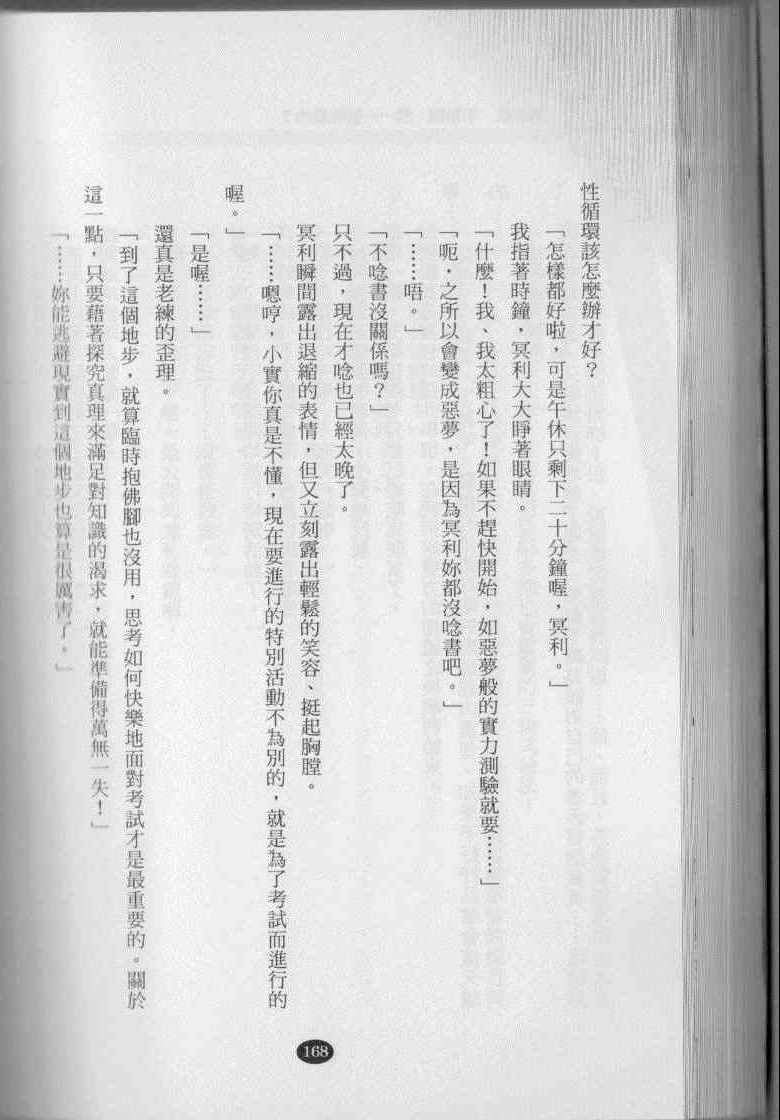 性循環該怎麼辦才好？
「怎樣都好啦，可是午休只剩下二十分鐘喔，冥利。」
我指著時鐘，冥利大大睜著眼睛。
「什麼！我、我太粗心了！如果不趕快開始，如惡夢般的實力測驗就要……」
「呃，之所以會變成惡夢，是因為冥利妳都沒唸書吧。」
「……唔。」
「不唸書沒關係嗎？」
只不過，現在才唸也已經太晚了。
冥利瞬間露出退縮的表情，但又立刻露出輕鬆的笑容、挺起胸膛。
「……嗯哼，小實你真是不懂，現在要進行的特別活動不為別的，就是為了考試而進行的
喔。」
「是喔……」
還真是老練的歪理。
「到了這個地步，就算臨時抱佛腳也沒用，思考如何快樂地面對考試才是最重要的。關於
這一點，只要藉著探究真理來滿足對知識的渴求，就能準備得萬無一失！」
「……妳能逃避現實到這個地步也算是很厲害了。」
168